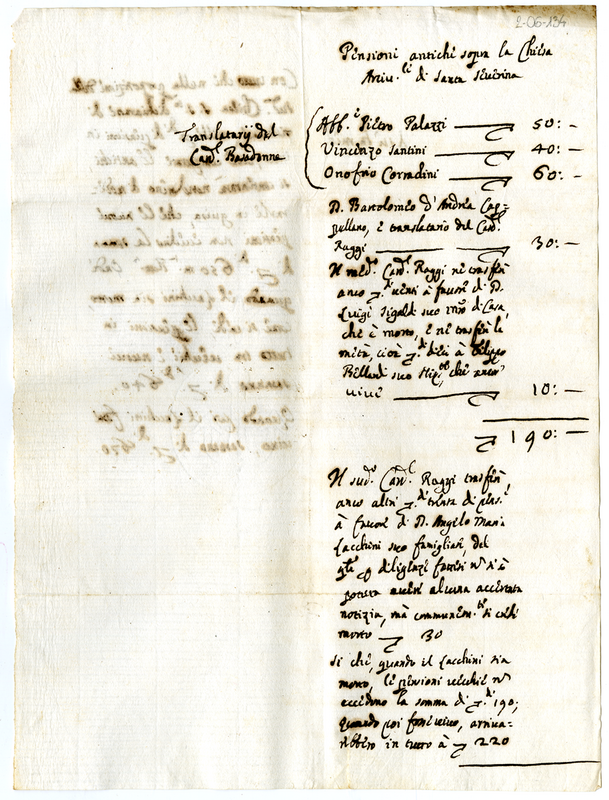 2-06-134
Pensioni antiche sopra la Chiesa
Arciv.li di Santa Severina
Translatarij del
Card. Basadonne
Abb.e Pietro Palazzi 50:—
Vincenzo Santini 40:—
Onofrio Corradini 60:—
D. Bartolomeo d'Andrea Cap-
pullano, è translatario del Card.l
Raggi 30:—
Il med.o Card. Raggi ne trasferì
anco venti à favore di D.
Luigi Sigaldi suo m.ro di Casa,
che è morto, e ne trasferì la
metà, cioè dieci à Filippo
suo che ancor
vive 10:—
190:—
Il sud.o Card.l Raggi trasferì,
anco altri trenta di pens.e
à favore di D. Angelo Maria
Zacchini suo famigliare, del
q.le diligenze fattesi n si è
potuto avere alcuna accertata
notizia, mà communem.te si crede
morto 30
Si che, quando il Zacchini sia
morto, le pensioni vecchie n
eccedono la somma di 190;
quando poi fosse vivo, arriva-
rebbero in tutto à 220